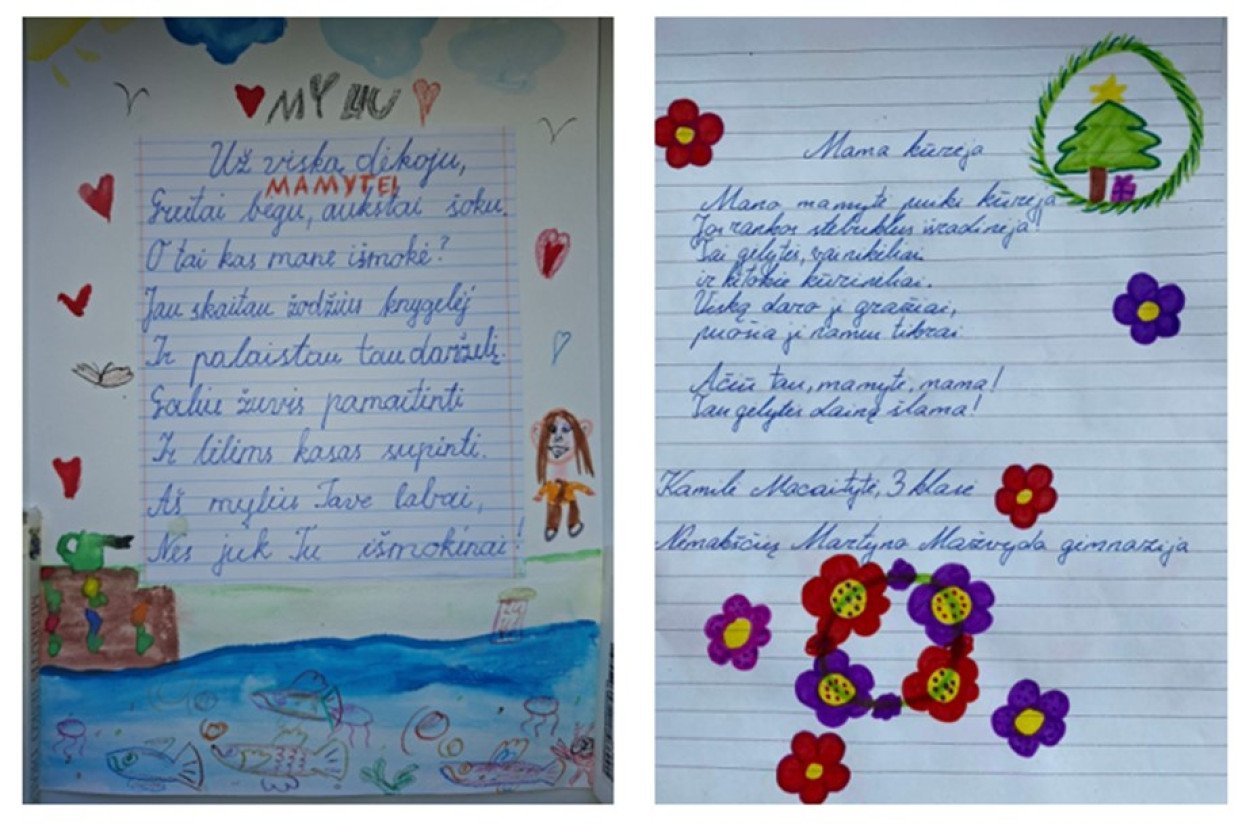 MYLIU
Už viską dėkoju,
MAMYTE!
Greitai bėgu, aukštai šoku.
O tai kas mane išmokė?
Jau skaitau žodžius knygelėj
Ir palaistau tau darželį.
Galiu žuvis pamaitinti
Ir lėlėms kasas supinti.
Aš myliu Tave labai,
Nes juk Tu išmokinai!
Mama kūrėja
Mano mamytė puiki kūrėja
Jos rankos stebuklus išradinėja!
Tai gėlytės, vainikėliai
ir kitokie kūrinėliai.
Viską daro ji gražiai,
puošia ji namus tikrai.
Ačiū tau, mamyte, mama!
Tau gėlytės dainą šlama!
Kamilė Macaitytė, 3 klasė
Nemakščių Martyno Mažvydo gimnazija